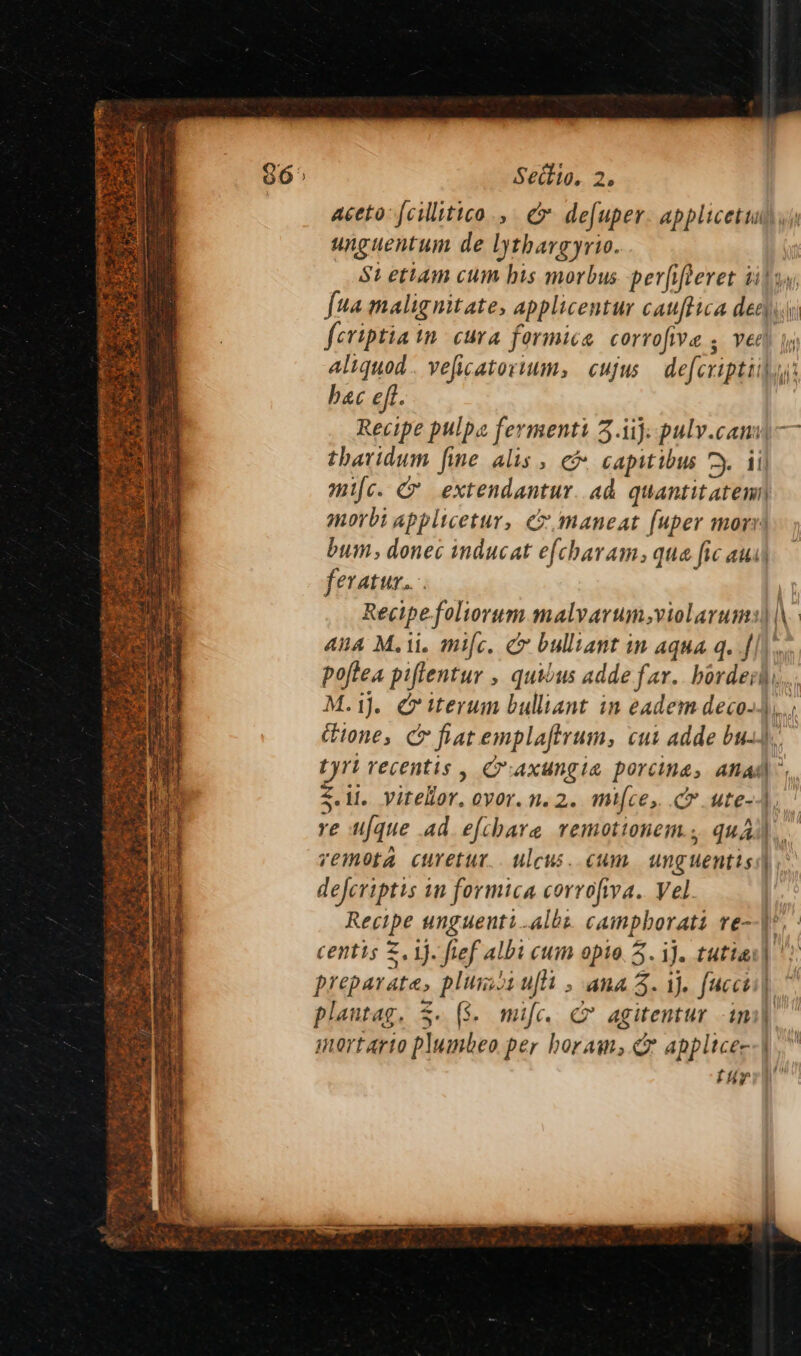 86
Sectio. 2.
aceto ſcillitico, & deſuper applicetu
unguentum de lythargyrio.
Si etiam cum his morbus perſiſteret
ſua malignitate, applicentur cauſtica de
ſcriptia in cura formicæ corroſivæ, ve
aliquod veſicatorium, cujus deſcripti
hæc eſt.
Recipe pulpæ fermenti ʒ.iij. pulv. can
tharidum ſine alis, & capitibus ℈. ii
miſc. & extendantur ad quantitatem
morbi applicetur, & maneat ſuper mor
bum, donec inducat eſcharam, quæ ſic au
feratur.
Recipe foliorum malvarum, violarum
ana M. ii. miſc. & bulliant in aqua q. ſ
poſtea piſtentur, quibus adde far. hordei
M. ij. & iterum bulliant in eadem deco-
ctione, & fiat emplaſtrum, cui adde bu-
tyri recentis, & axungiæ porcinæ, ana
℥. ii. vitellor. ovor. n. 2. miſce, & ute-
re uſque ad eſcharæ remotionem, quâ
remotâ curetur ulcus cum unguentis
deſcriptis in formica corroſiva. Vel
Recipe unguenti albi camphorati re-
centis ℥. ij. ſief albi cum opio ʒ. ij. tutiæ
preparatæ, plumbi uſti, ana ʒ. ij. ſucci
plantag. ℥. ß. miſc. & agitentur in
mortario plumbeo per horam, & applice-
tur